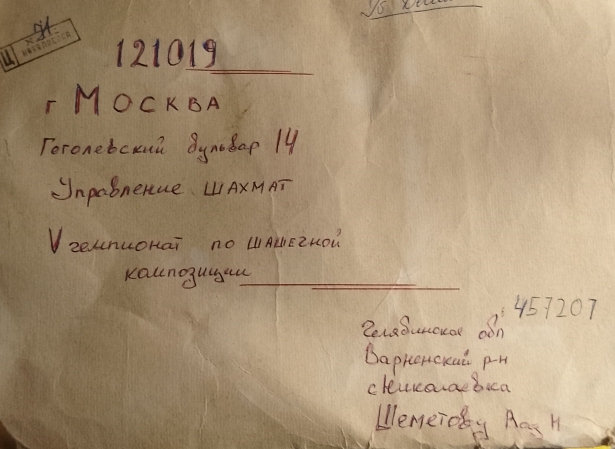 121019
г МОСКВА
Гоголевский бульвар 14
Управление ШАХМАТ
V чемпионат по ШАШЕЧНОЙ
композиции
457207
Челябинское обл
Варненский р-н
с Николаевка
Шеметову